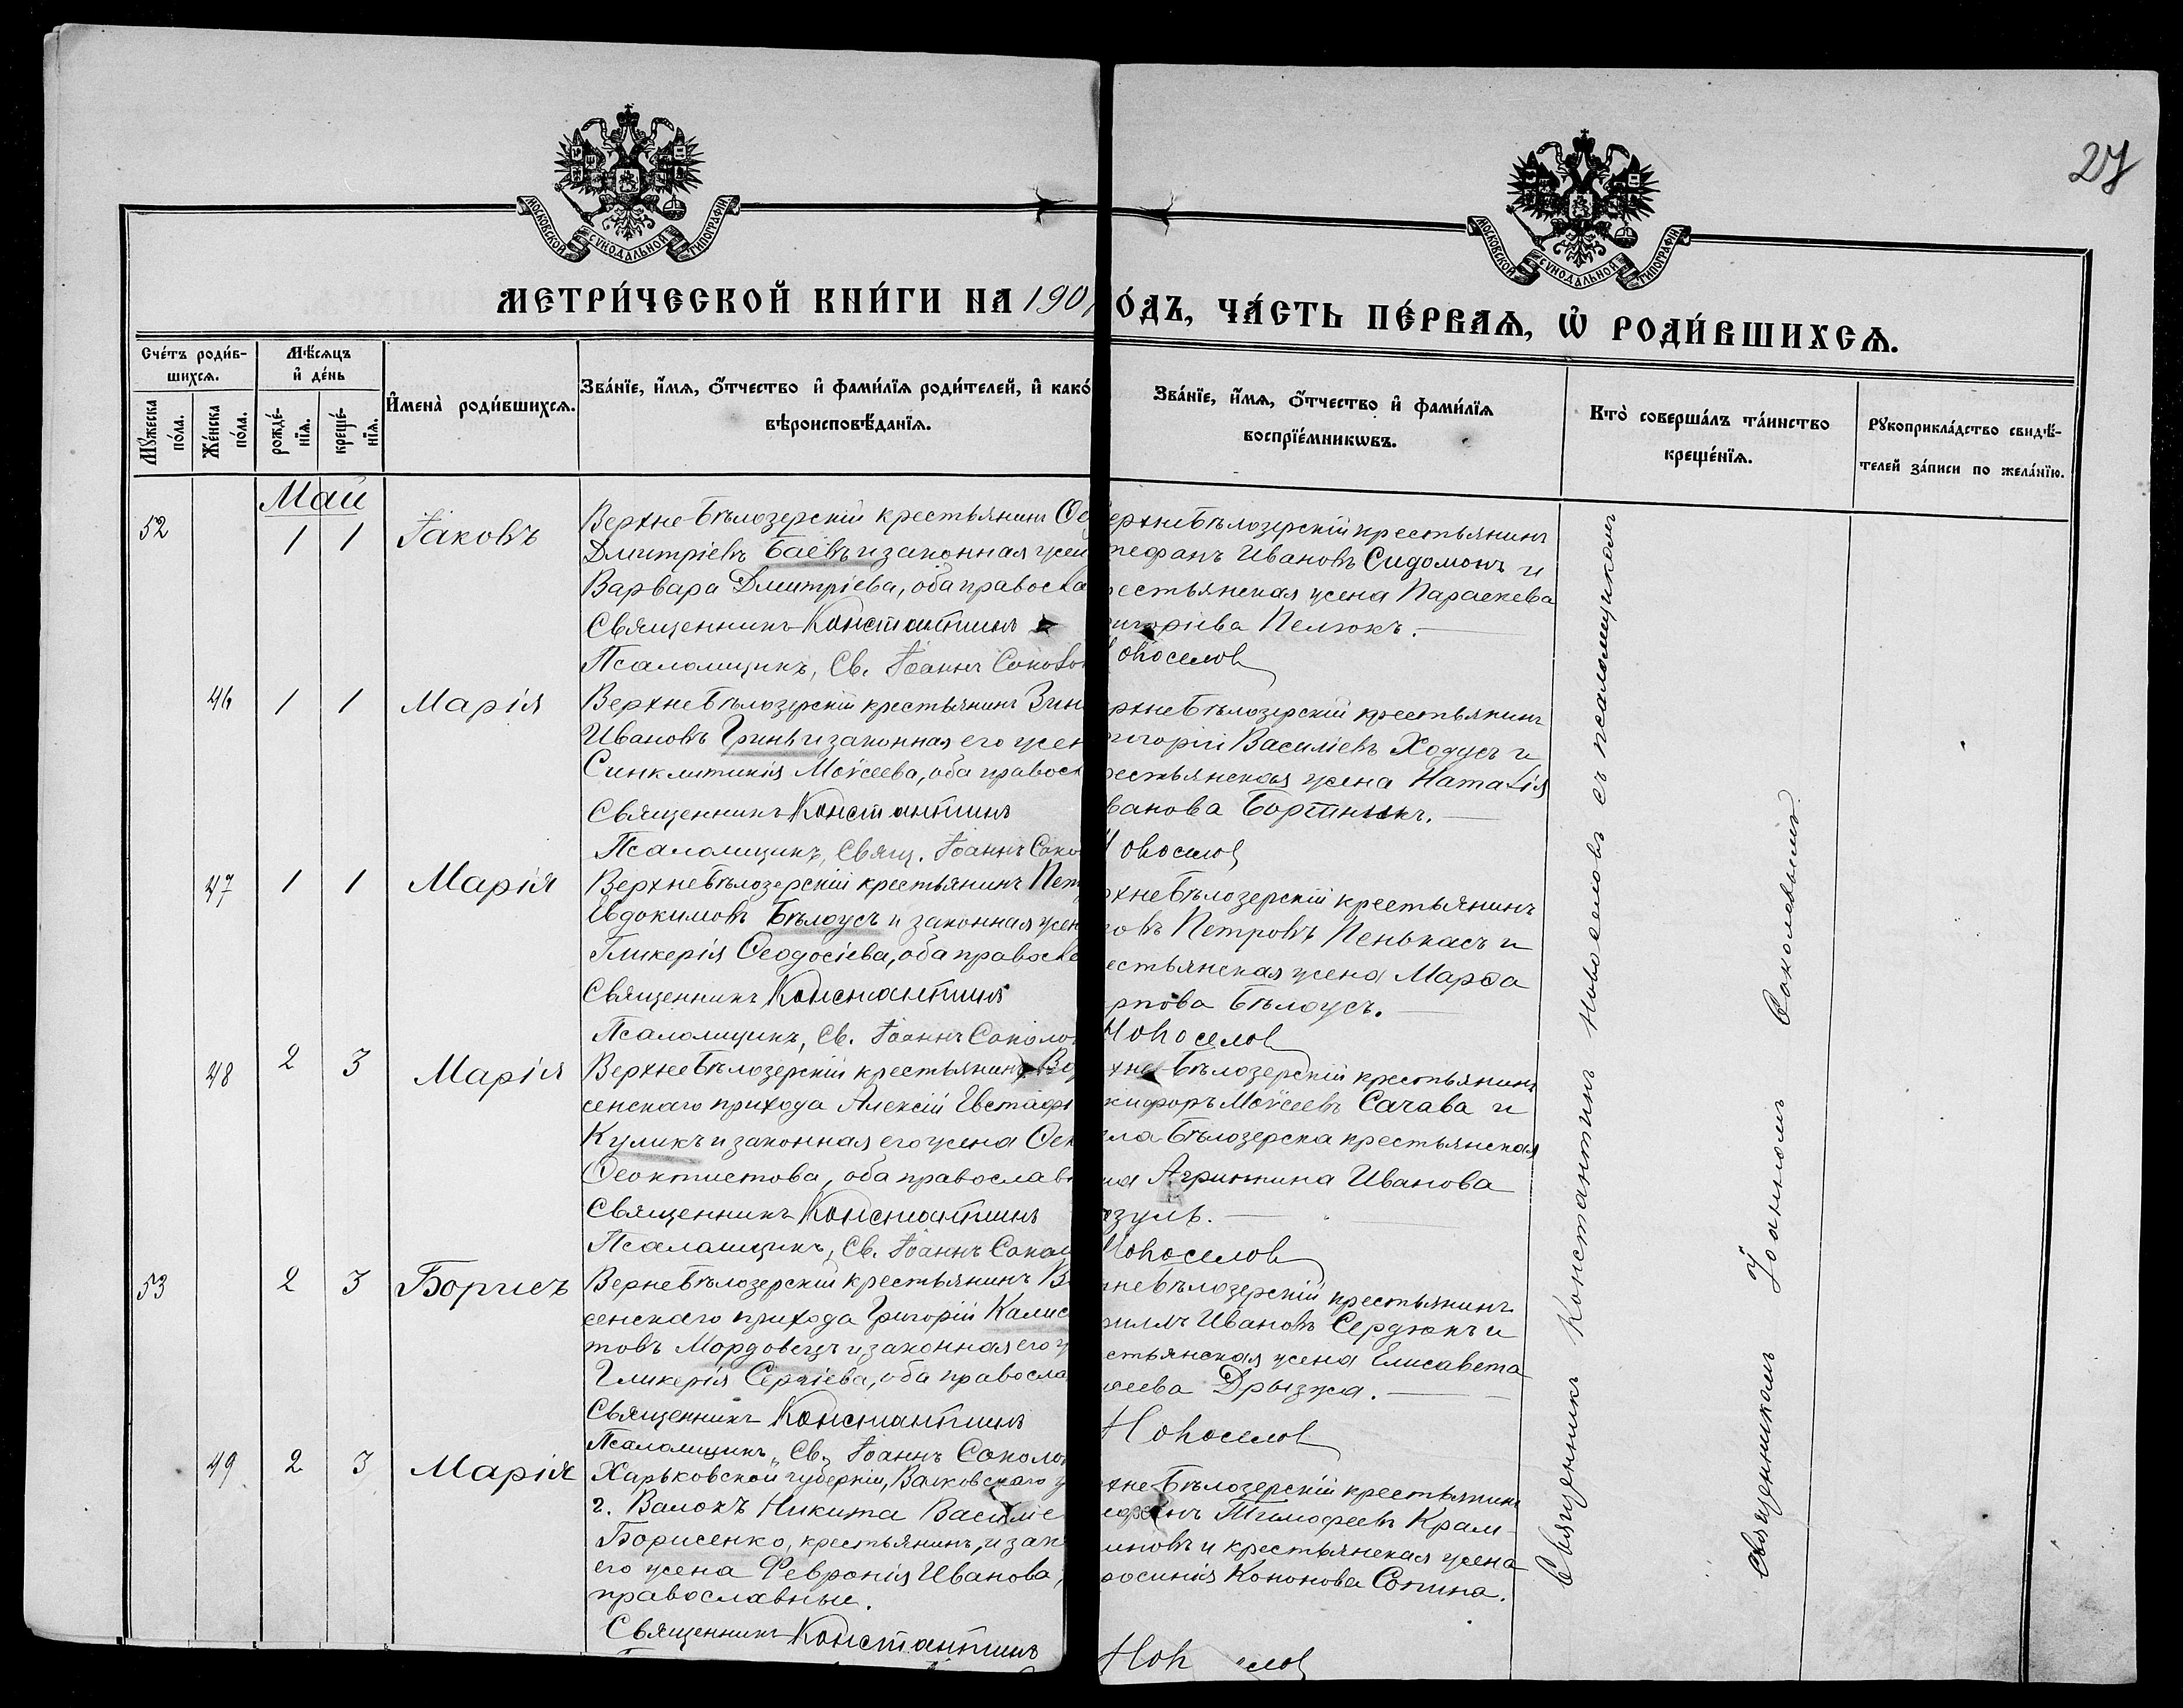 27
МОСКОВСКОЙ СѴНОДАЛЬНОЙ ТИПОГРАФІИ
МОСКОВСКОЙ СѴНОДАЛЬНОЙ ТИПОГРАФІИ
МЕТРИ́ЧЕСКОЙ КНИ́ГИ НА 190
О́ДЪ, ЧА́СТЬ ПЕ́РВАѦ, Ѡ҆ РОДИ́ВШИХСѦ.
Сче́тъ роди́в-
шихсѧ.
Мꙋ́жеска
по́ла.
Же́нска
по́ла.
Мѣ́сѧцъ
и҆ де́нь
рожде́-
нїѧ.
креще́-
нїѧ.
И҆мена̀ роди́вшихсѧ.
Зва́нїе, и҆́мѧ, ѻ҆́тчество и҆ фами́лїѧ роди́телей, и҆ како́
вѣроисповѣ́данїѧ.
Зва́нїе, и҆́мѧ, ѻ҆́тчество и҆ фами́лїѧ
воспрїе́мникѡвъ.
Кто̀ соверша́лъ та́инство
креще́нїѧ.
Рꙋкоприкла́дство свидѣ́-
телей за́писи по жела́нїю.
Май
52
1 1 Іаковъ
Верхне-Бѣлозерскій крестьянинъ Ѳе
Дмитріевъ Баевъ и законная жен
Варвара Дмитріева, оба правосла
Священникъ Константинъ
Псаломщикъ, Св. Іоаннъ Соколо
ерхнеБѣлозерскій крестьянинъ
тефанъ Ивановъ Сидомонъ и
рестьянская жена Параскева
ригоріева Пелюхъ.
овоселов
46 1 1 Марія
ВерхнеБѣлозерскій крестьянинъ Зин
Ивановъ Гринь и законная его жен
Синклитикія Моѵсеева, оба правосл
Священникъ Константинъ
Псаломщикъ, Свящ. Іоаннъ Соко
рхнеБѣлозерскій крестьянинъ
ригорій Василіевъ Ходусъ и
рестьянская жена Наталія
ванова Бортникъ.
Новоселов
47 1 1 Марія
ВерхнеБѣлозерскій крестьянинъ Пет
Евдокимовъ Бѣлоусъ и законная жен
Гликерія Ѳеодосіева, оба правосла
Священникъ Константинъ
Псаломщикъ, Св. Іоаннъ Соколо
рхнеБѣлозерскій крестьянинъ
овъ Петровъ Пенькасъ и
естьянская жена Марѳа
рпова Бѣлоусъ.
Новоселов
48 2 3 Марія
ВерхнеБѣлозерскій крестьянинъ Воз
сенскаго прихода Алексій Евстафі
Куликъ и законная его жена Ѳек
Ѳеоктистова, оба православн
Священникъ Константинъ
Псаломщикъ, Св. Іоаннъ Соко
хне-Бѣлозерскій крестьянинъ
кифоръ Моѵсеевъ Сачава и
ела Бѣлозерка крестьянская
на Агриппина Иванова
зуль.
Новоселов
53 2 3 Борисъ
ВернеБѣлозерскій крестьянинъ В
сенскаго прихода Григорій Калис
товъ Мордовецъ и законная его ж
Гликерія Сергіева, оба правосла
Священникъ Константинъ
Псаломщикъ, Св. Іоаннъ Соколо
хнеБѣлозерскій крестьянинъ
риллъ Ивановъ Сердюкъ и
естьянская жена Елисавета
сеева Дрызжа.
Новоселов
49 2 3 Марія
Харьковской губерніи, Валковскаго у
г. Валокъ Никита Василіе
Борисенко, крестьянинъ, и зак
его жена Февронія Иванова,
православные.
Священникъ Константинъ
хне-Бѣлозерскій крестьянинъ
Тимофеевъ Крам-
иновъ и крестьянская жена
росинія Кононова Сопина.
Нов елов
Священникъ Константинъ Новоселовъ съ псаломщикомъ
священникомъ Іоанномъ Соколовымъ